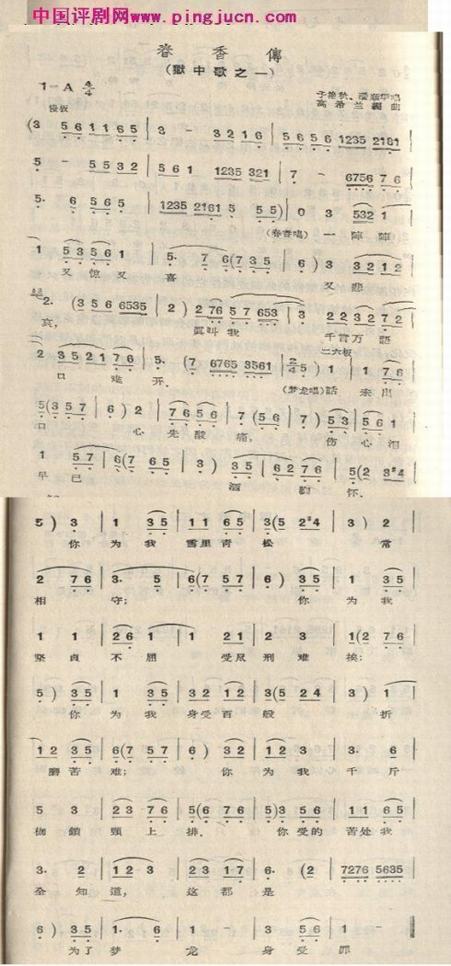 中国评剧网 www.pingjucn.com
春香傳
(獄中歌之一)
1-A 4/4
慢板
(3 5 6 1 1 6 5 | 3 - 3 2 1 6 | 5 6 5 6 1235 2161
5 - 5 5 3 2 | 5 6 1 1235 321 | 7 - 6756 7 6
5. 6 5 6 1 | 1235 2161 5 5 5) | 0 3 532 1
(春香唱) 一陣陣
1 5 3 5 6 1 | 5. 7 6 (7 3 5 | 6) 3 3 2 1 2
又惊又喜 又悲
2. (3 5 6 6535 | 2) 2 76 5 6 653 | 2 2 3 2 7 2
哀, 眞叫我 千言万語
二六板
2 3 5 2 1 7 6 | 5. (7 6765 3561 | 2/4 5) 1 | 1 7 6
口难开. (梦龙唱)話未出
5 (3 5 7 | 6) 2 | 7 6 5 6 | 7 (5 6 | 7) 5 3 | 5 6 5
口 心先酸痛, 伤心泪
1 5 7 | 6 (7 6 5 | 3) 3 5 | 6 2 7 6 | 5 (2 3#4
早已 洒胸怀.
5) 3 | 1 3 5 | 1 1 6 5 | 3 (5 2#4 | 3) 2
你为我雪里青松 常
2 7 6 | 3. 5 | 6 (7 5 7 | 6) 3 5 | 1 3 5
相守; 你为我
1 1 | 2 6 1 | 1 2 1 | 2 3 | 1 (2 7 6
坚貞不屈 受尽刑难挨;
5) 3 5 | 1 3 5 | 3 2 1 2 | 3 (5 2 4 | 3) 1
你为我身受百般 折
1 2 3 5 | 6 (7 5 7 | 6) 3 2 | 1 2 3 | 3. 6
磨苦难; 你为我千斤
5 3 | 2 3 7 6 | 5 (6 7 6 | 5) 3 5 6 | 1 1 6 5
枷鎖頸上排. 你受的苦处我
3. 2 | 1 2 3 | 2 3 1 7 | 6. (2 | 7276 5635
全知道, 这都是
6) 3 5 | 1. 6 | 1 1 | 3 5 6 | 1 - |
为了梦龙身受罪